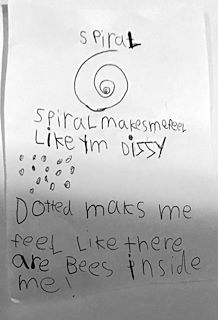 spiraL
spiraL makes me feel
Like im Dissy
Dotted maks me
feel Like there
are Bees inside
me!